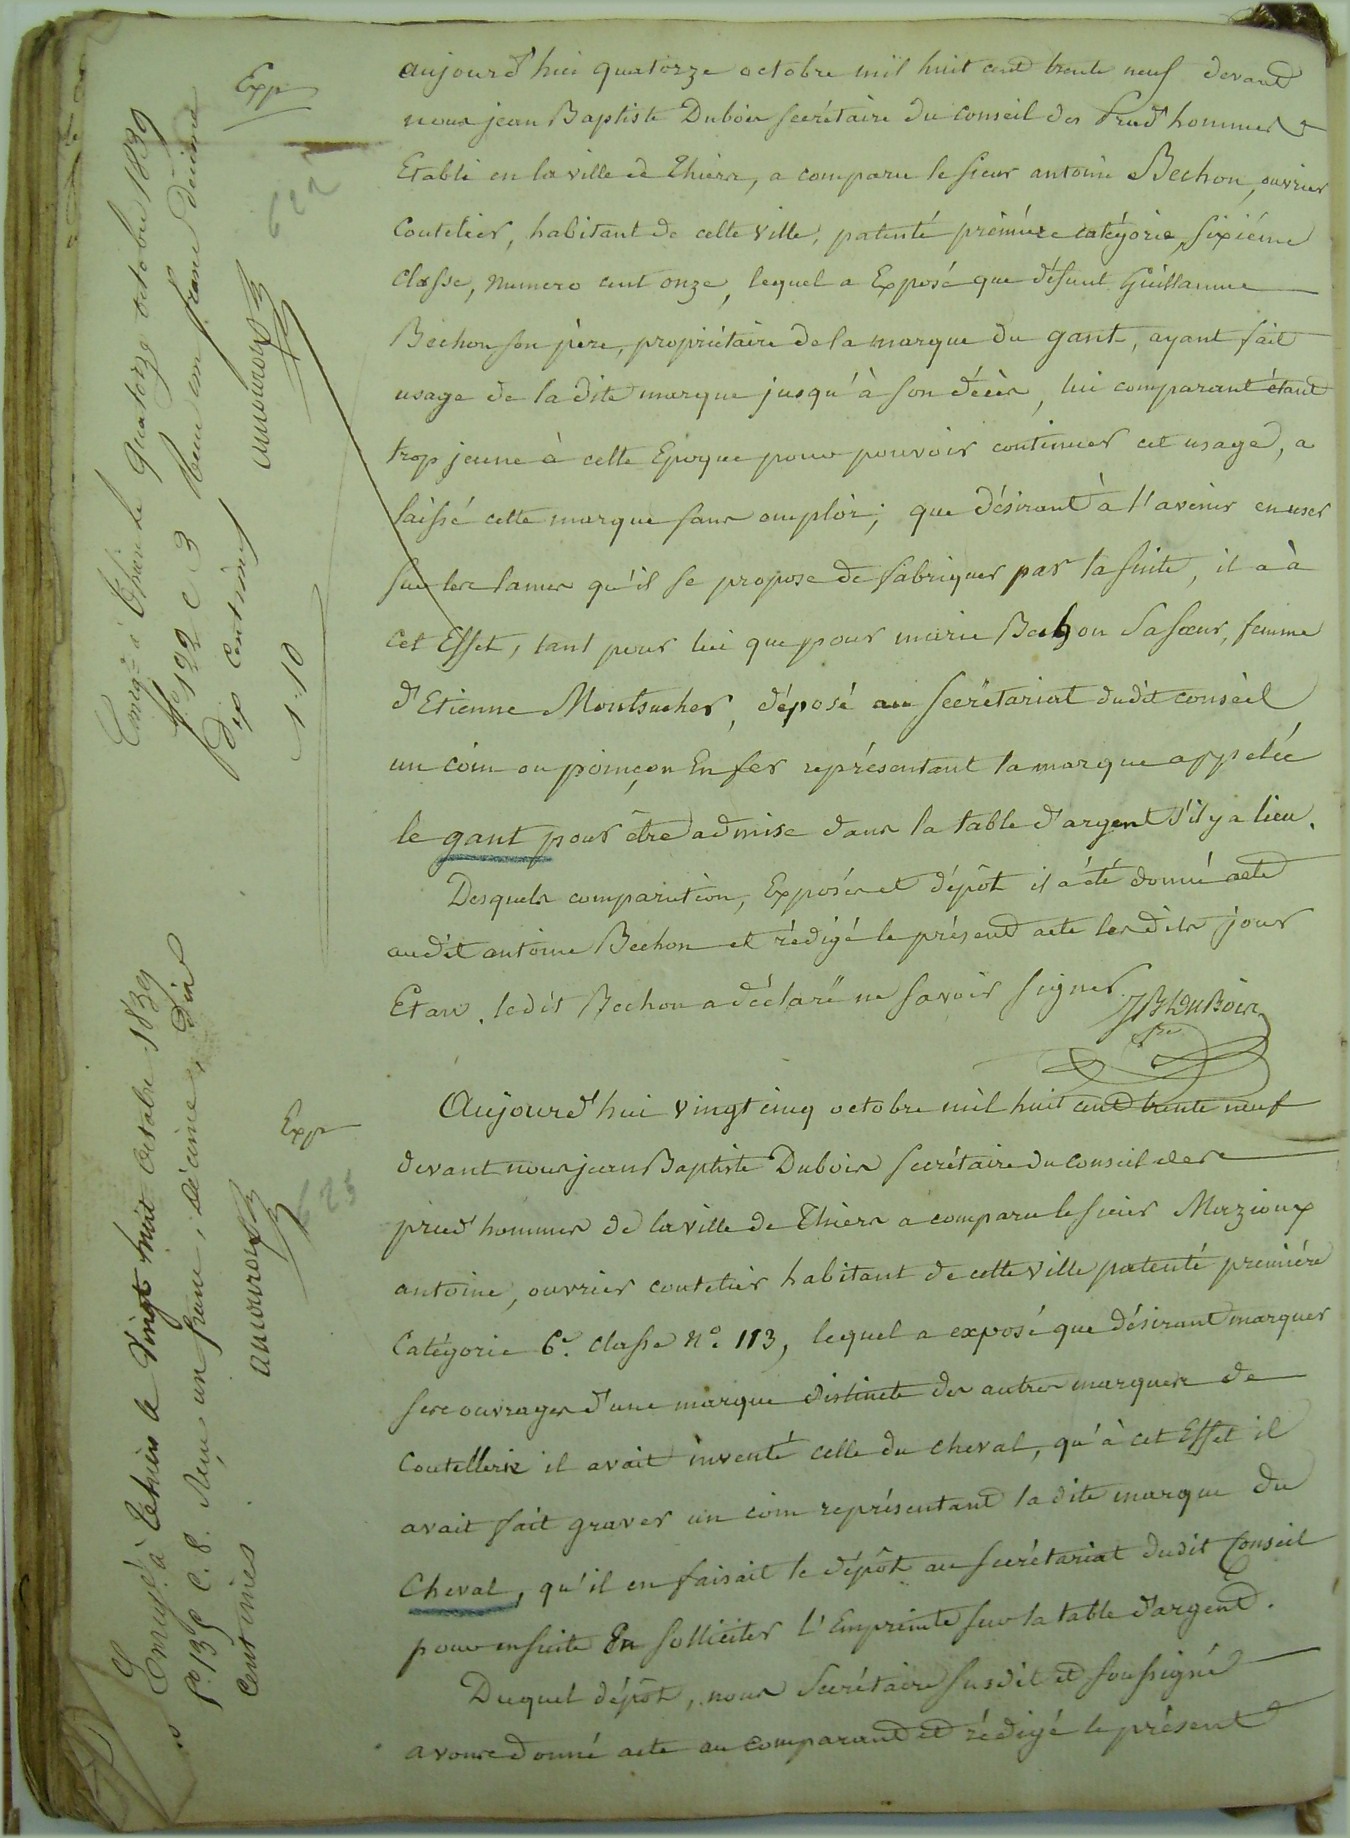 Exp
622
aujourd'hui quatorze octobre mil huit cent trente neuf devant
nous jean Baptiste Dubois secrétaire du conseil des Prud'hommes
Etabli en la ville de Thiers, a comparu le sieur antoine Bechon, ouvrier
Coutelier, habitant de cette ville, patenté première catégorie, sixième
classe, numero cent onze, lequel a Exposé que défunt Guillaume
Bechon son père, propriétaire de la marque du gant, ayant fait
usage de la dite marque jusqu'à son décès, lui comparant étant
trop jeune à cette Epoque pour pouvoir continuer cet usage, a
laissé cette marque sans emploi; que désirant à l'avenir en user
sur les lames qu'il se propose de fabriquer par la suite, il a à
cet Effet, tant pour lui que pour marie Bechon sa sœur, femme
d'Etienne Montsucher, déposé au secrétariat dudit conseil
un coin ou poinçon En fer représentant la marque appelée
le gant pour être admise dans la table d'argent s'il y a lieu.
Desquels comparution, Exposés et dépôt il a été donné acte
audit antoine Bechon et rédigé le présent acte les dits jour
Et an. ledit Bechon a déclaré ne savoir signer.
JBt DuBois
sre
Enrgé à Thiers le quatorze octobre 1839
fo 122 c 3 Reçu un franc décime
dix centimes
1-10
Exp
625
Aujourd'hui vingt cinq octobre mil huit cent trente neuf
devant nous jean Baptiste Dubois secrétaire du conseil des
prud'hommes de la ville de Thiers a comparu le sieur Mazioux
antoine, ouvrier coutelier habitant de cette ville patenté première
Catégorie 6e classe No 113, lequel a exposé que désirant marquer
ses ouvrages d'une marque distincte des autres marques de
Coutellerie il avait inventé celle du cheval, qu'à cet Effet il
avait fait graver un coin représentant la dite marque du
Cheval, qu'il en faisait le dépôt au secrétariat dudit Conseil
pour ensuite En solliciter l'Empreinte sur la table d'argent.
Duquel dépôt, nous Secrétaire susdit et soussigné
avons donné acte au comparant et rédigé le présent
Enrgé à Thiers le Vingt huit octobre 1839
fo 135 C. 8. Reçu un franc, décime, dix
Centimes.